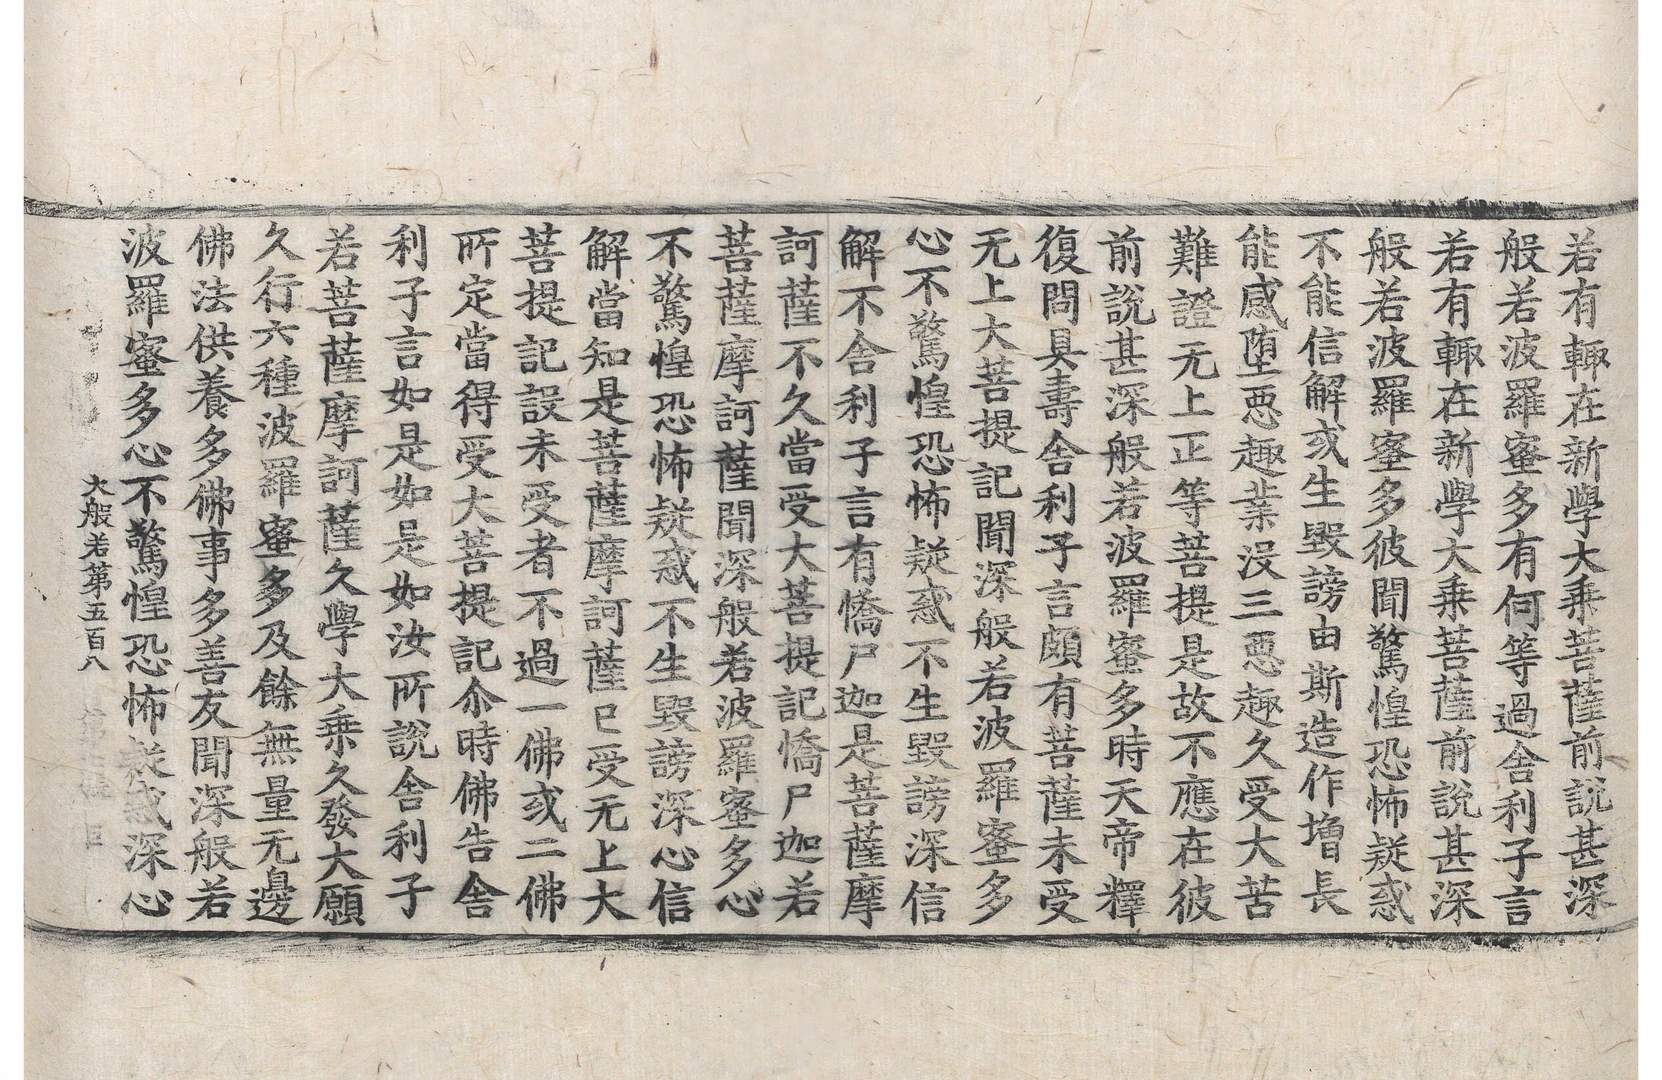 若有輙在新學大乗菩薩前說甚深
般若波羅蜜多有何等過舍利子言
若有輙在新學大乗菩薩前說甚深
般若波羅蜜多彼聞驚惶恐怖疑惑
不能信解或生毀謗由斯造作增長
能感堕悪趣業没三悪趣久受大苦
難證无上正等菩提是故不應在彼
前說甚深般若波羅蜜多時天帝釋
復問具壽舍利子言頗有菩薩未受
无上大菩提記聞深般若波羅蜜多
心不驚惶恐怖疑惑不生毀謗深信
解不舍利子言有憍尸迦是菩薩摩
訶薩不久當受大菩提記憍尸迦若
菩薩摩訶薩聞深般若波羅蜜多心
不驚惶恐怖疑惑不生毀謗深心信
解當知是菩薩摩訶薩已受无上大
菩提記設未受者不過一佛或二佛
所定當得受大菩提記尒時佛告舍
利子言如是如是如汝所說舍利子
若菩薩摩訶薩久學大乗久發大願
久行六種波羅蜜多及餘無量无邊
佛法供養多佛事多善友聞深般若
波羅蜜多心不驚惶恐怖疑惑深心
大般若第五百八